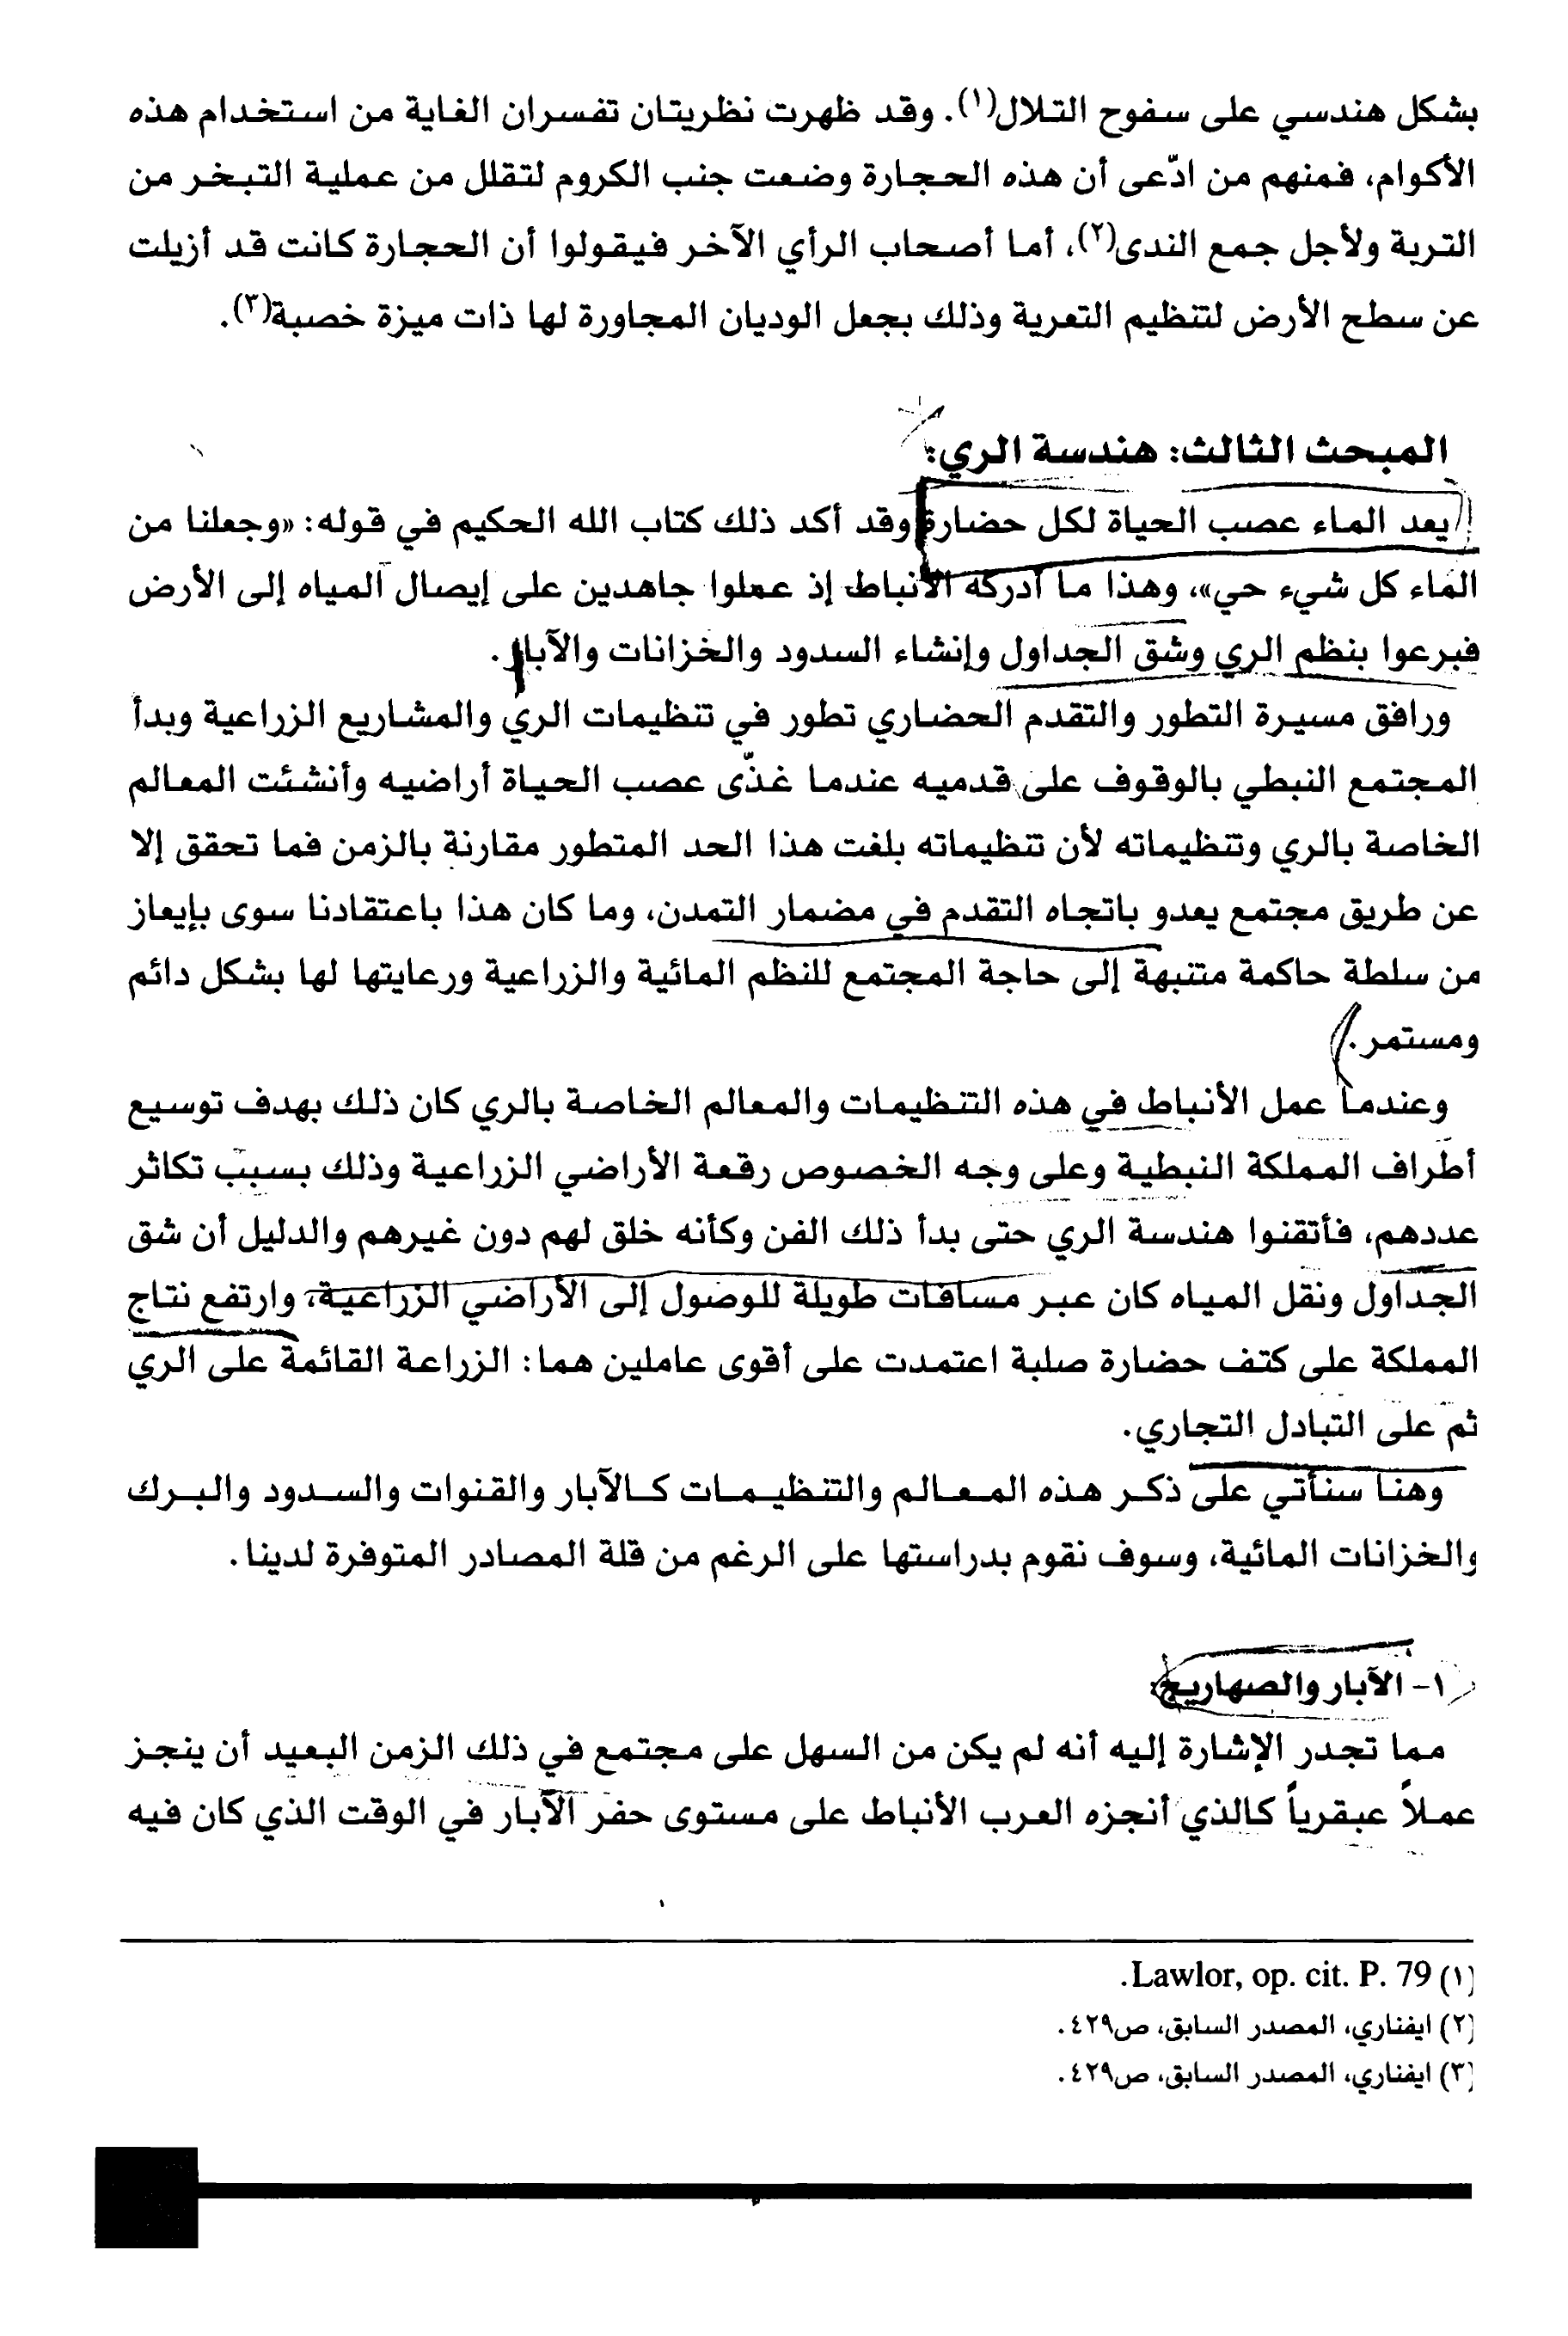 بشكل هندسي على سفوح التلال(١). وقد ظهرت نظريتان تفسران الغاية من استخدام هذه
الأكوام، فمنهم من ادّعى أن هذه الحجارة وضعت جنب الكروم لتقلل من عملية التبخر من
التربة ولأجل جمع الندى(٢)، أما أصحاب الرأي الآخر فيقولوا أن الحجارة كانت قد أزيلت
عن سطح الأرض لتنظيم التعرية وذلك بجعل الوديان المجاورة لها ذات ميزة خصبة(٣).
المبحث الثالث: هندسة الري:
يعد الماء عصب الحياة لكل حضارة وقد أكد ذلك كتاب الله الحكيم في قوله: «وجعلنا من
الماء كل شيء حي»، وهذا ما أدركه الأنباط إذ عملوا جاهدين على إيصال المياه إلى الأرض
فبرعوا بنظم الري وشق الجداول وإنشاء السدود والخزانات والآبار.
ورافق مسيرة التطور والتقدم الحضاري تطور في تنظيمات الري والمشاريع الزراعية وبدأ
المجتمع النبطي بالوقوف على قدميه عندما غذّى عصب الحياة أراضيه وأنشئت المعالم
الخاصة بالري وتنظيماته لأن تنظيماته بلغت هذا الحد المتطور مقارنة بالزمن فما تحقق إلا
عن طريق مجتمع يعدو باتجاه التقدم في مضمار التمدن، وما كان هذا باعتقادنا سوى بإيعاز
من سلطة حاكمة متنبهة إلى حاجة المجتمع للنظم المائية والزراعية ورعايتها لها بشكل دائم
ومستمر.
وعندما عمل الأنباط في هذه التنظيمات والمعالم الخاصة بالري كان ذلك بهدف توسيع
أطراف المملكة النبطية وعلى وجه الخصوص رقعة الأراضي الزراعية وذلك بسبب تكاثر
عددهم، فأتقنوا هندسة الري حتى بدأ ذلك الفن وكأنه خلق لهم دون غيرهم والدليل أن شق
الجداول ونقل المياه كان عبر مسافات طويلة للوصول إلى الأراضي الزراعية، وارتفع نتاج
المملكة على كتف حضارة صلبة اعتمدت على أقوى عاملين هما: الزراعة القائمة على الري
ثم على التبادل التجاري.
وهنا سنأتي على ذكر هذه المعالم والتنظيمات كالآبار والقنوات والسدود والبرك
والخزانات المائية، وسوف نقوم بدراستها على الرغم من قلة المصادر المتوفرة لدينا.
١- الآبار والصهاريج:
مما تجدر الإشارة إليه أنه لم يكن من السهل على مجتمع في ذلك الزمن البعيد أن ينجز
عملاً عبقرياً كالذي أنجزه العرب الأنباط على مستوى حفر الآبار في الوقت الذي كان فيه
(١) Lawlor, op. cit. P. 79.
(٢) ايفناري، المصدر السابق، ص٤٢٩.
(٣) ايفناري، المصدر السابق، ص٤٢٩.